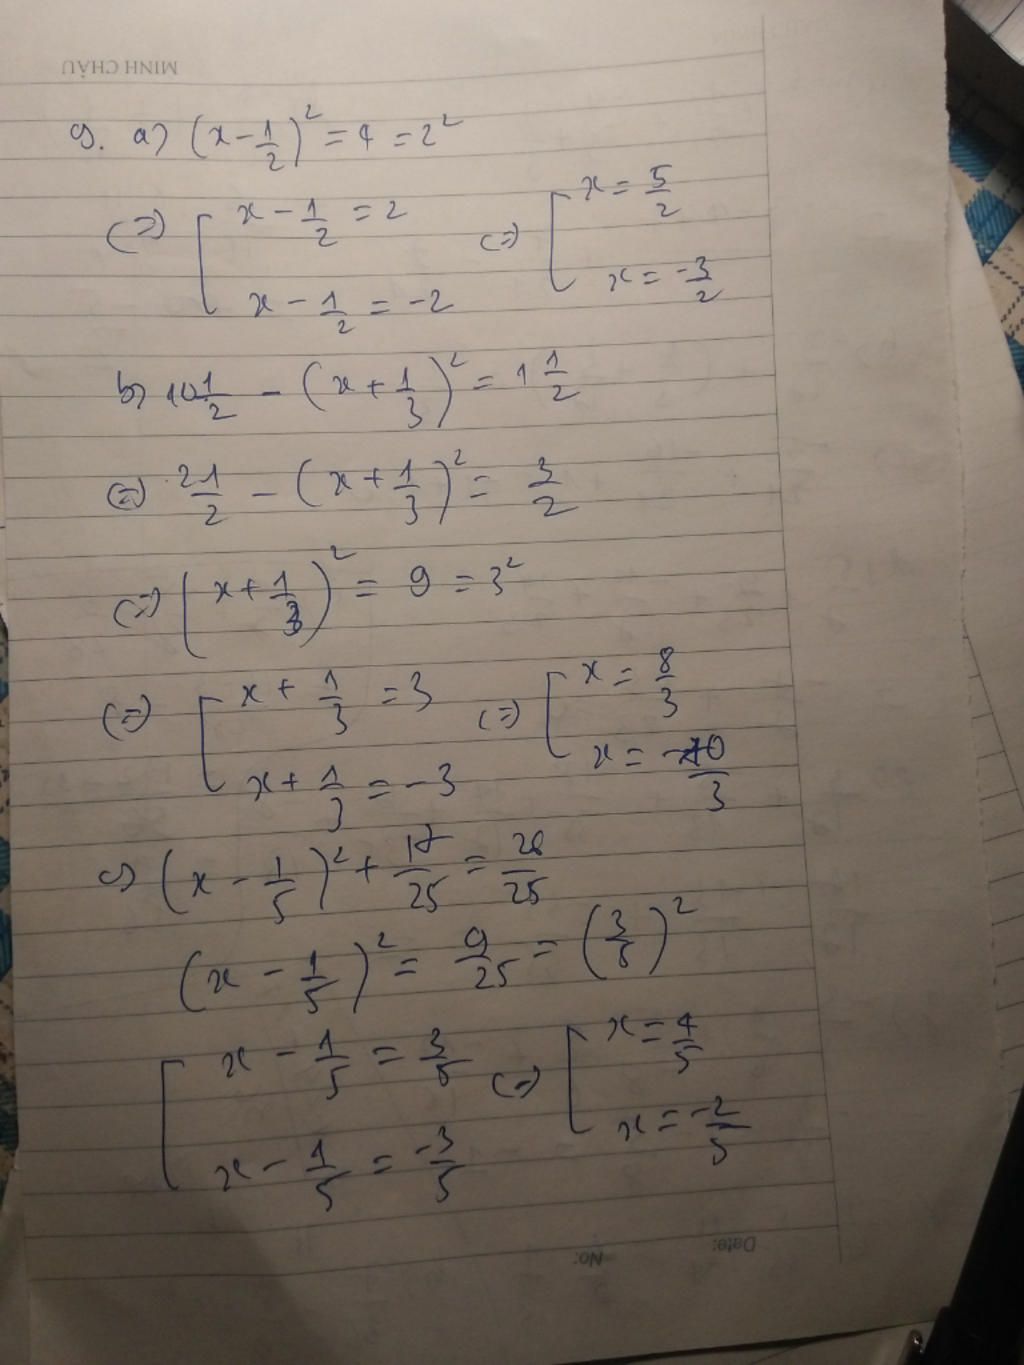 MINH CHÂU
9. a) (x - 1/2)² = 4 = 2²
(=) [ x - 1/2 = 2 (=) [ x = 5/2
x - 1/2 = -2 x = -3/2
b) 10 1/2 - (x + 1/3)² = 1 1/2
(=) 21/2 - (x + 1/3)² = 3/2
(=) (x + 1/3)² = 9 = 3²
(=) [ x + 1/3 = 3 (=) [ x = 8/3
x + 1/3 = -3 x = -10/3
c) (x - 1/5)² + 17/25 = 26/25
(x - 1/5)² = 9/25 = (3/5)²
[ x - 1/5 = 3/5 (=) [ x = 4/5
x - 1/5 = -3/5 x = -2/5
Date:
No: